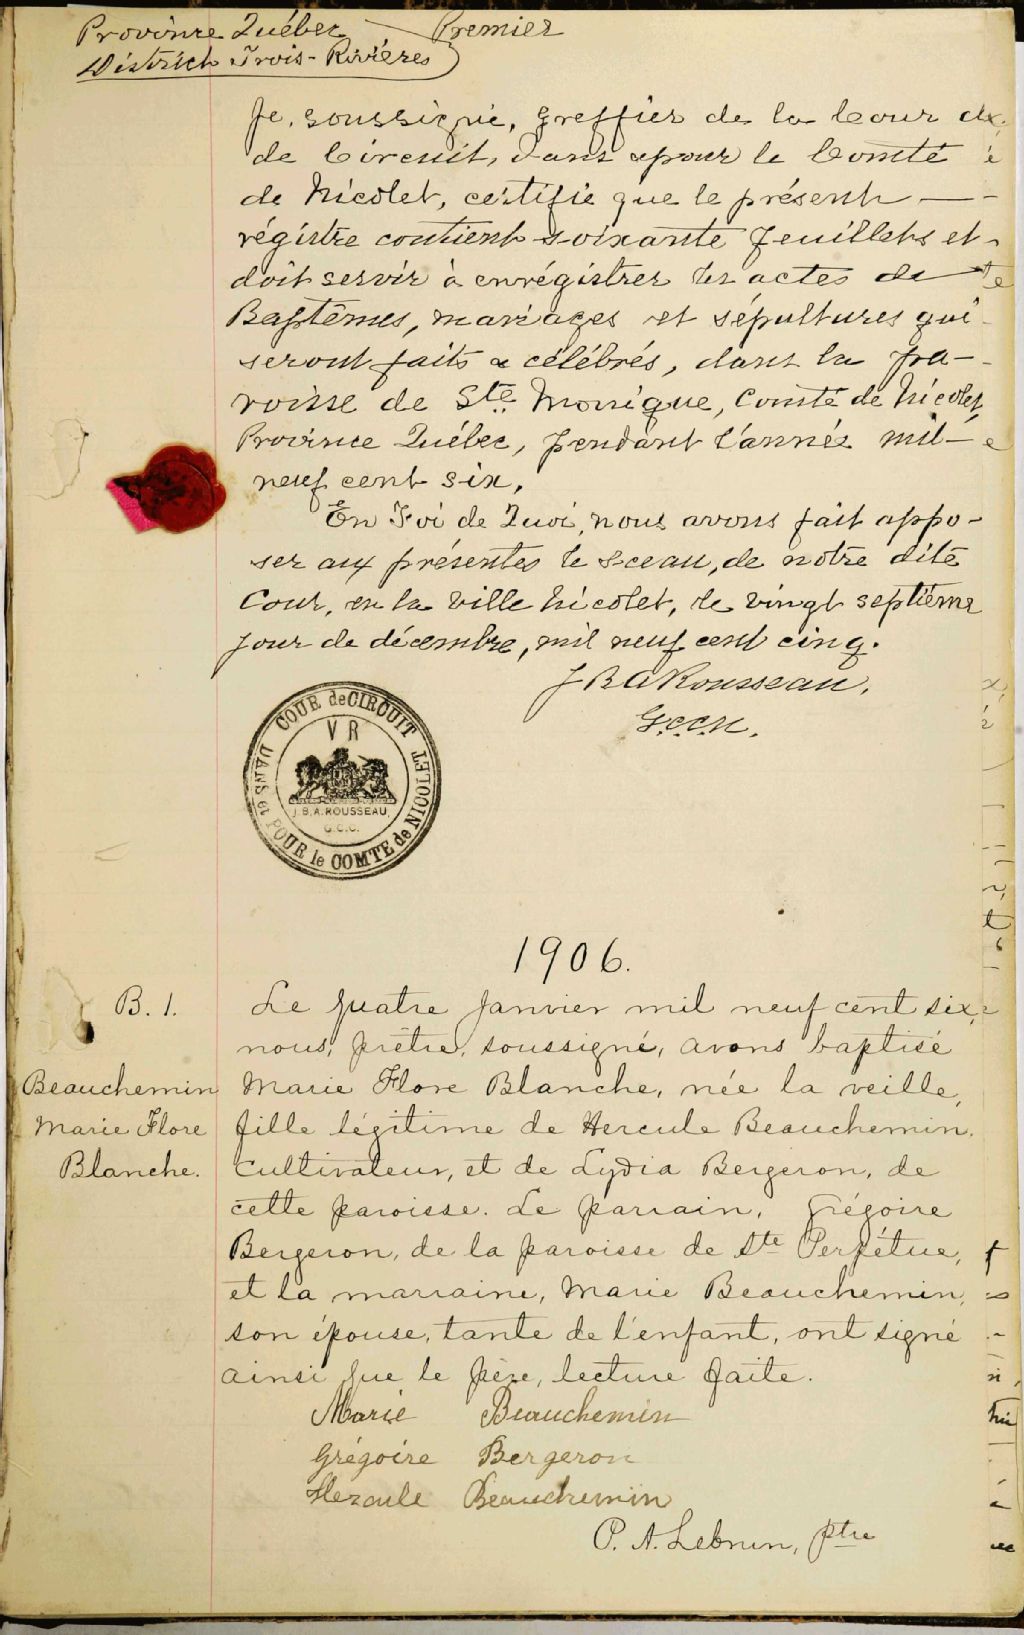 Province Québec Premier
District Trois-Rivières
Je, soussigné, Greffier de la Cour
de Circuit, dans & pour le Comté
de Nicolet, certifie que le présent
régistre contient soixante feuillets et
doit servir à enrégistrer les actes de
Baptêmes, mariages et sépultures qui
seront faits & célébrés, dans la pa-
roisse de Ste Monique, Comté de Nicolet,
Province Québec, pendant l'année mil-
neuf cent six,
En Foi de Quoi, nous avons fait appo-
ser aux présentes le sceau, de notre dite
Cour, en la ville Nicolet, le vingt septième
jour de décembre, mil neuf cent cinq.
J B A Rousseau,
G.C.C.N.
COUR de CIRCUIT
DANS et POUR le COMTE de NICOLET
V R
J.B.A. ROUSSEAU,
G.C.C.
1906.
B. 1.
Beauchemin
Marie Flore
Blanche.
Le quatre janvier mil neuf cent six,
nous, prêtre, soussigné, avons baptisé
Marie Flore Blanche, née la veille,
fille légitime de Hercule Beauchemin,
cultivateur, et de Lydia Bergeron, de
cette paroisse. Le parrain, Grégoire
Bergeron, de la paroisse de Ste Perpétue,
et la marraine, Marie Beauchemin,
son épouse, tante de l'enfant, ont signé
ainsi que le père, lecture faite.
Marie Beauchemin
Grégoire Bergeron
Hercule Beauchemin
P. A. Lebrun, ptre